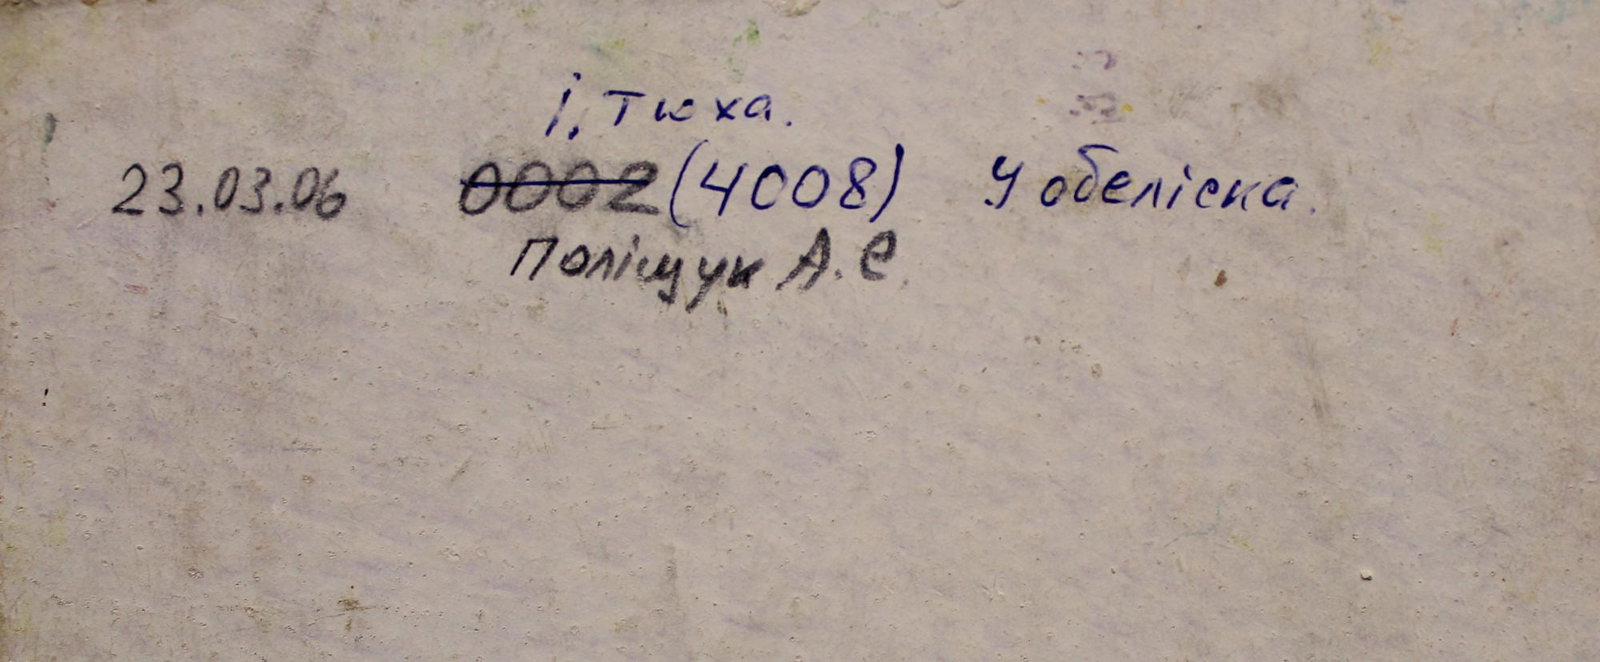 і. тюха.
23.03.06 0002 (4008) У обеліска.
Поліщук А. С.